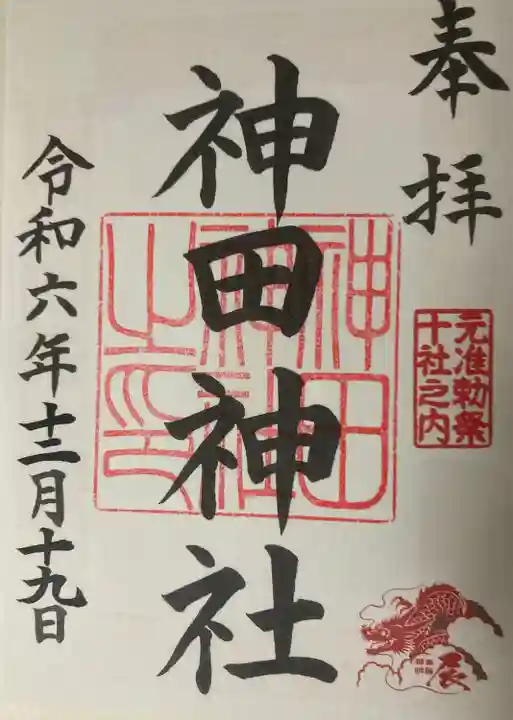 奉拝
元准勅祭
十社之内
辰
神田神社
神田
神社
之印
令和六年十二月十九日